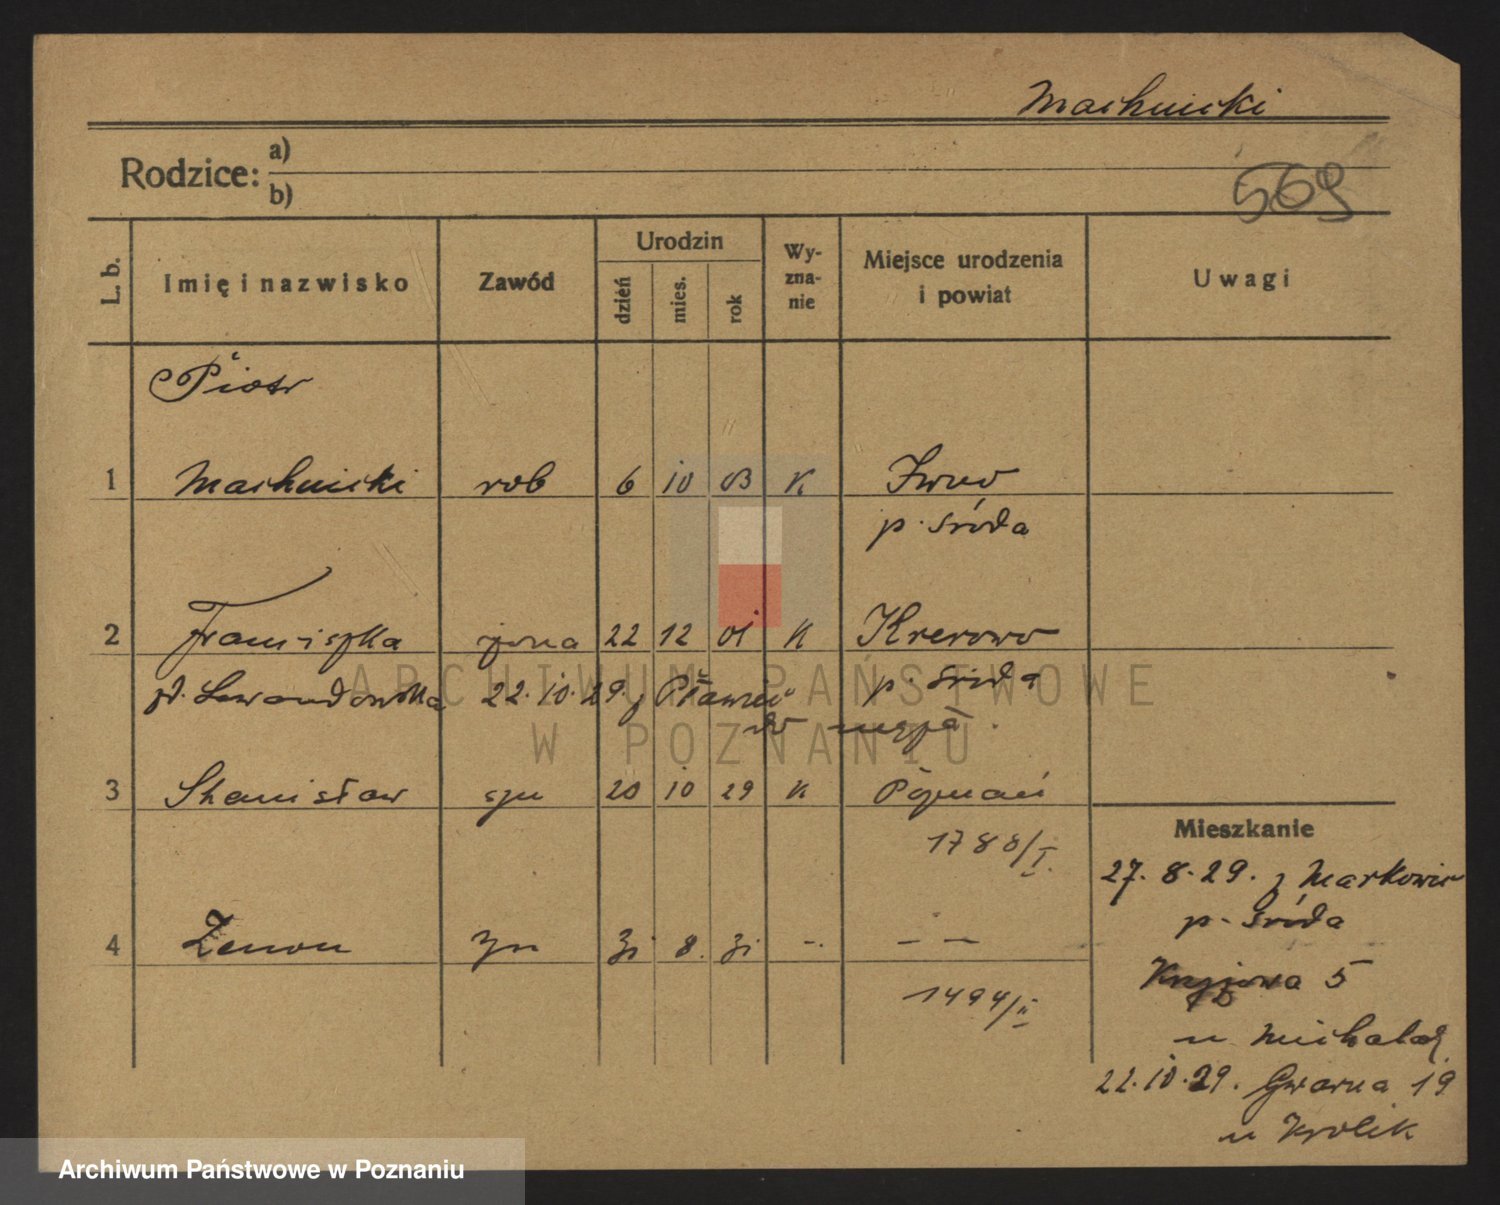 Machnicki
Rodzice: a)
b)
569
L. b. Imię i nazwisko Zawód Urodzin dzień mies. rok Wyznanie Miejsce urodzenia i powiat Uwagi
Piotr
1 Machnicki rob 6 10 03 K Iwno
p. Środa
2 Franciszka żona 22 12 01 K Krerowo
zd. Lewandowska 22.10.29. z Pławiec p. Środa
do męża
3 Stanisław syn 20 10 29 K Poznań
1788/I.
Mieszkanie
27.8.29. z Markowic
p. Środa
4 Zenon syn 31 8. 31 -. — —
Kryżowa 5
1494/II
u Michalak
22.10.29. Gwarna 19
u Krolik
ARCHIWUM PAŃSTWOWE
W POZNANIU
Archiwum Państwowe w Poznaniu